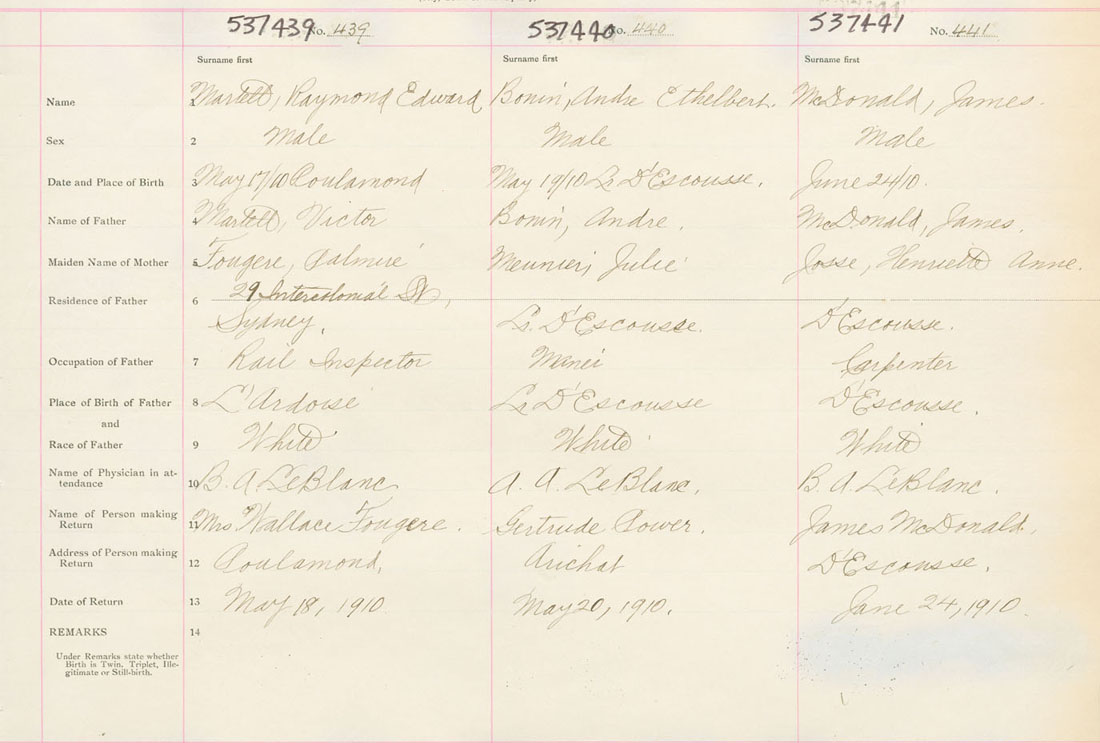 537439 No. 439 537440 No. 440 537441 No. 441
Surname first Surname first Surname first
Name 1 Martell, Raymond Edward Bonin, Andre Ethelbert. McDonald, James.
Sex 2 Male Male Male
Date and Place of Birth 3 May 17/10 Poulamond May 19/10 Lr D'Escousse. June 24/10.
Name of Father 4 Martell, Victor Bonin, Andre. McDonald, James.
Maiden Name of Mother 5 Fougere, Palmire Meunier, Julie Josse, Henriette Anne.
29 Intercolonial St,
Residence of Father 6
Sydney. Lr. D'Escousse. D'Escousse.
Occupation of Father 7 Rail Inspector Carpenter
Place of Birth of Father 8 L'Ardoise Lr D'Escousse D'Escousse.
and
Race of Father 9 White White White
Name of Physician in at-
tendance 10 B. A. LeBlanc A. A. LeBlanc. B. A. LeBlanc.
Name of Person making
Return 11 Mrs Wallace Fougere. Gertrude Power. James McDonald.
Address of Person making
Return 12 Poulamond, Arichat D'Escousse.
Date of Return 13 May 18, 1910 May 20, 1910. June 24, 1910
REMARKS 14
Under Remarks state whether
Birth is Twin, Triplet, Ille-
gitimate or Still-birth.